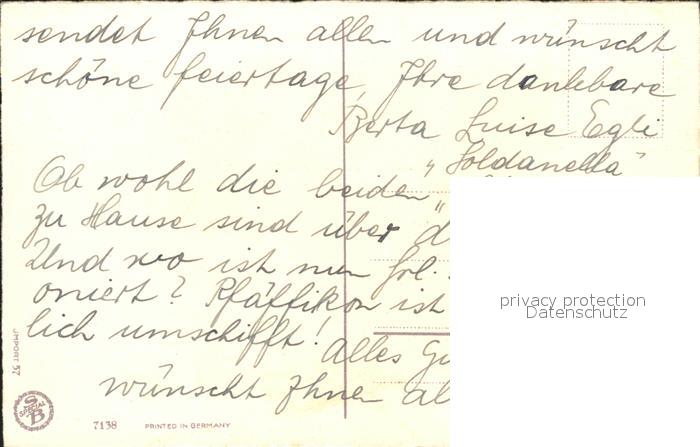 sendet Ihnen allen und wünscht
schöne Feiertage, Ihre dankbare
Berta Luise Egli
"Soldanella"
Ob wohl die beiden "
zu Hause sind über d
Und wo ist nun Frl.
oniert? Pfäffikon ist
lich umschifft!
Alles Gu
wünscht Ihnen al
privacy protection
Datenschutz
IMPORT 57
SPECIAL
SB
7138 PRINTED IN GERMANY